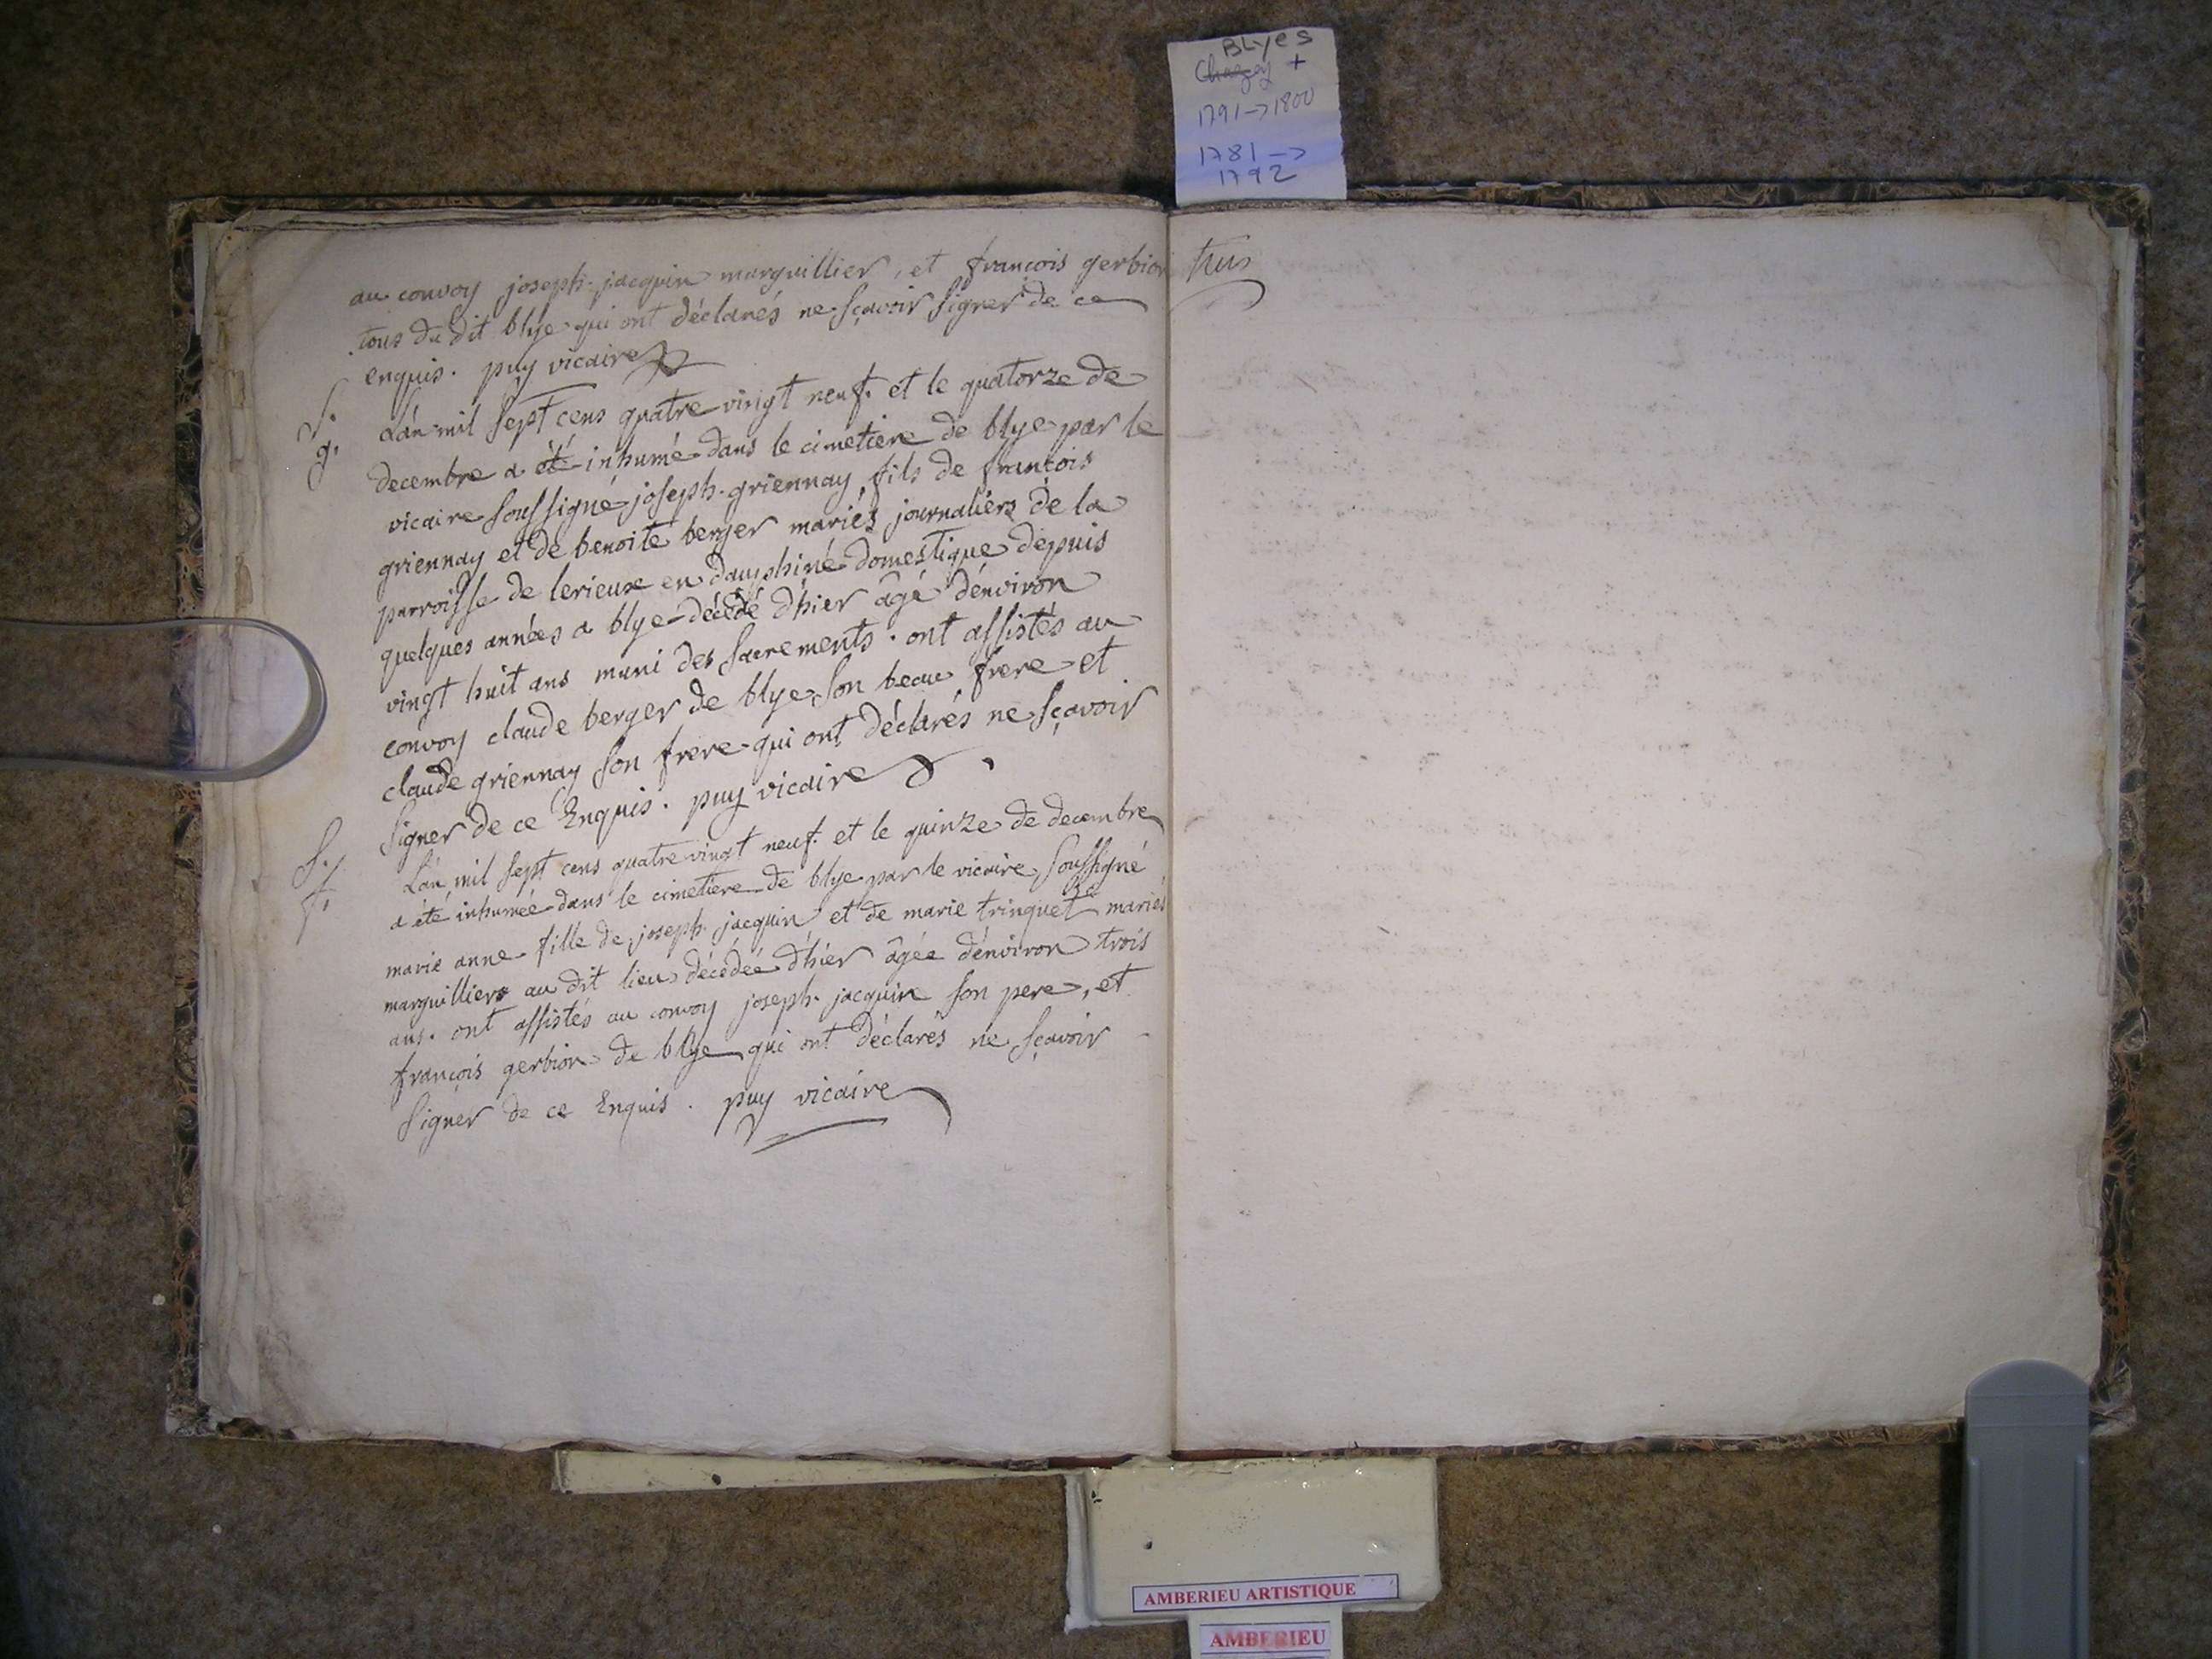 BLyes
Chazey +
1791 -> 1800
1781 ->
1792
au convoy joseph jacquin marguillier, et francois gerbion
tous du dit blye qui ont déclarés ne sçavoir signer de ce
enquis. puy vicaire
S.
g.
L'an mil sept cens quatre vingt neuf. et le quatorze de
decembre a été inhumé dans le cimetiere de blye par le
vicaire soussigné joseph griennay fils de francois
griennay et de benoite berger mariés journaliers de la
parroisse de lerieux en dauphiné domestique depuis
quelques années a blye décédé d'hier âgé d'énviron
vingt huit ans muni des sacrements. ont assistés au
convoy claude berger de blye son beau frere et
claude griennay son frere qui ont déclarés ne sçavoir
signer de ce Enquis. puy vicaire
S.
f.
L'an mil sept cens quatre vingt neuf. et le quinze de decembre
a été inhumée dans le cimetiere de blye par le vicaire soussigné
marie anne fille de joseph jacquin et de marie trinquet mariés
marguilliers au dit lieu décédée d'hier âgée d'énviron trois
ans. ont assistés au convoy joseph jacquin son pere, et
françois gerbion de blye qui ont déclarés ne sçavoir
signer de ce Enquis. puy vicaire
AMBERIEU ARTISTIQUE
AMBERIEU